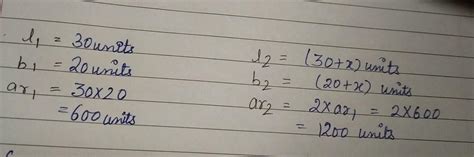 l₁ = 30 units
b₁ = 20 units
ar₁ = 30×20
= 600 units
l₂ = (30+x) units
b₂ = (20+x) units
ar₂ = 2×ar₁ = 2×600
= 1200 units